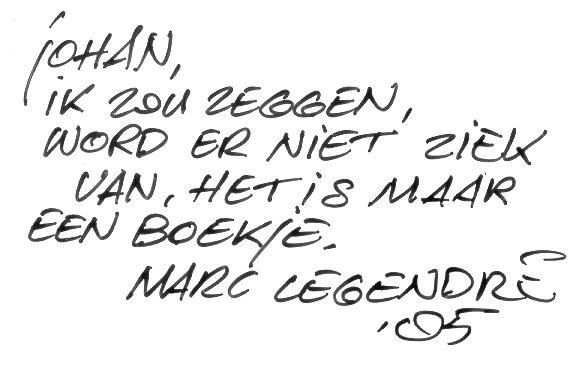 JOHAN,
IK ZOU ZEGGEN,
WORD ER NIET ZIEK
VAN, HET IS MAAR
EEN BOEKJE.
MARC LEGENDRE
'05